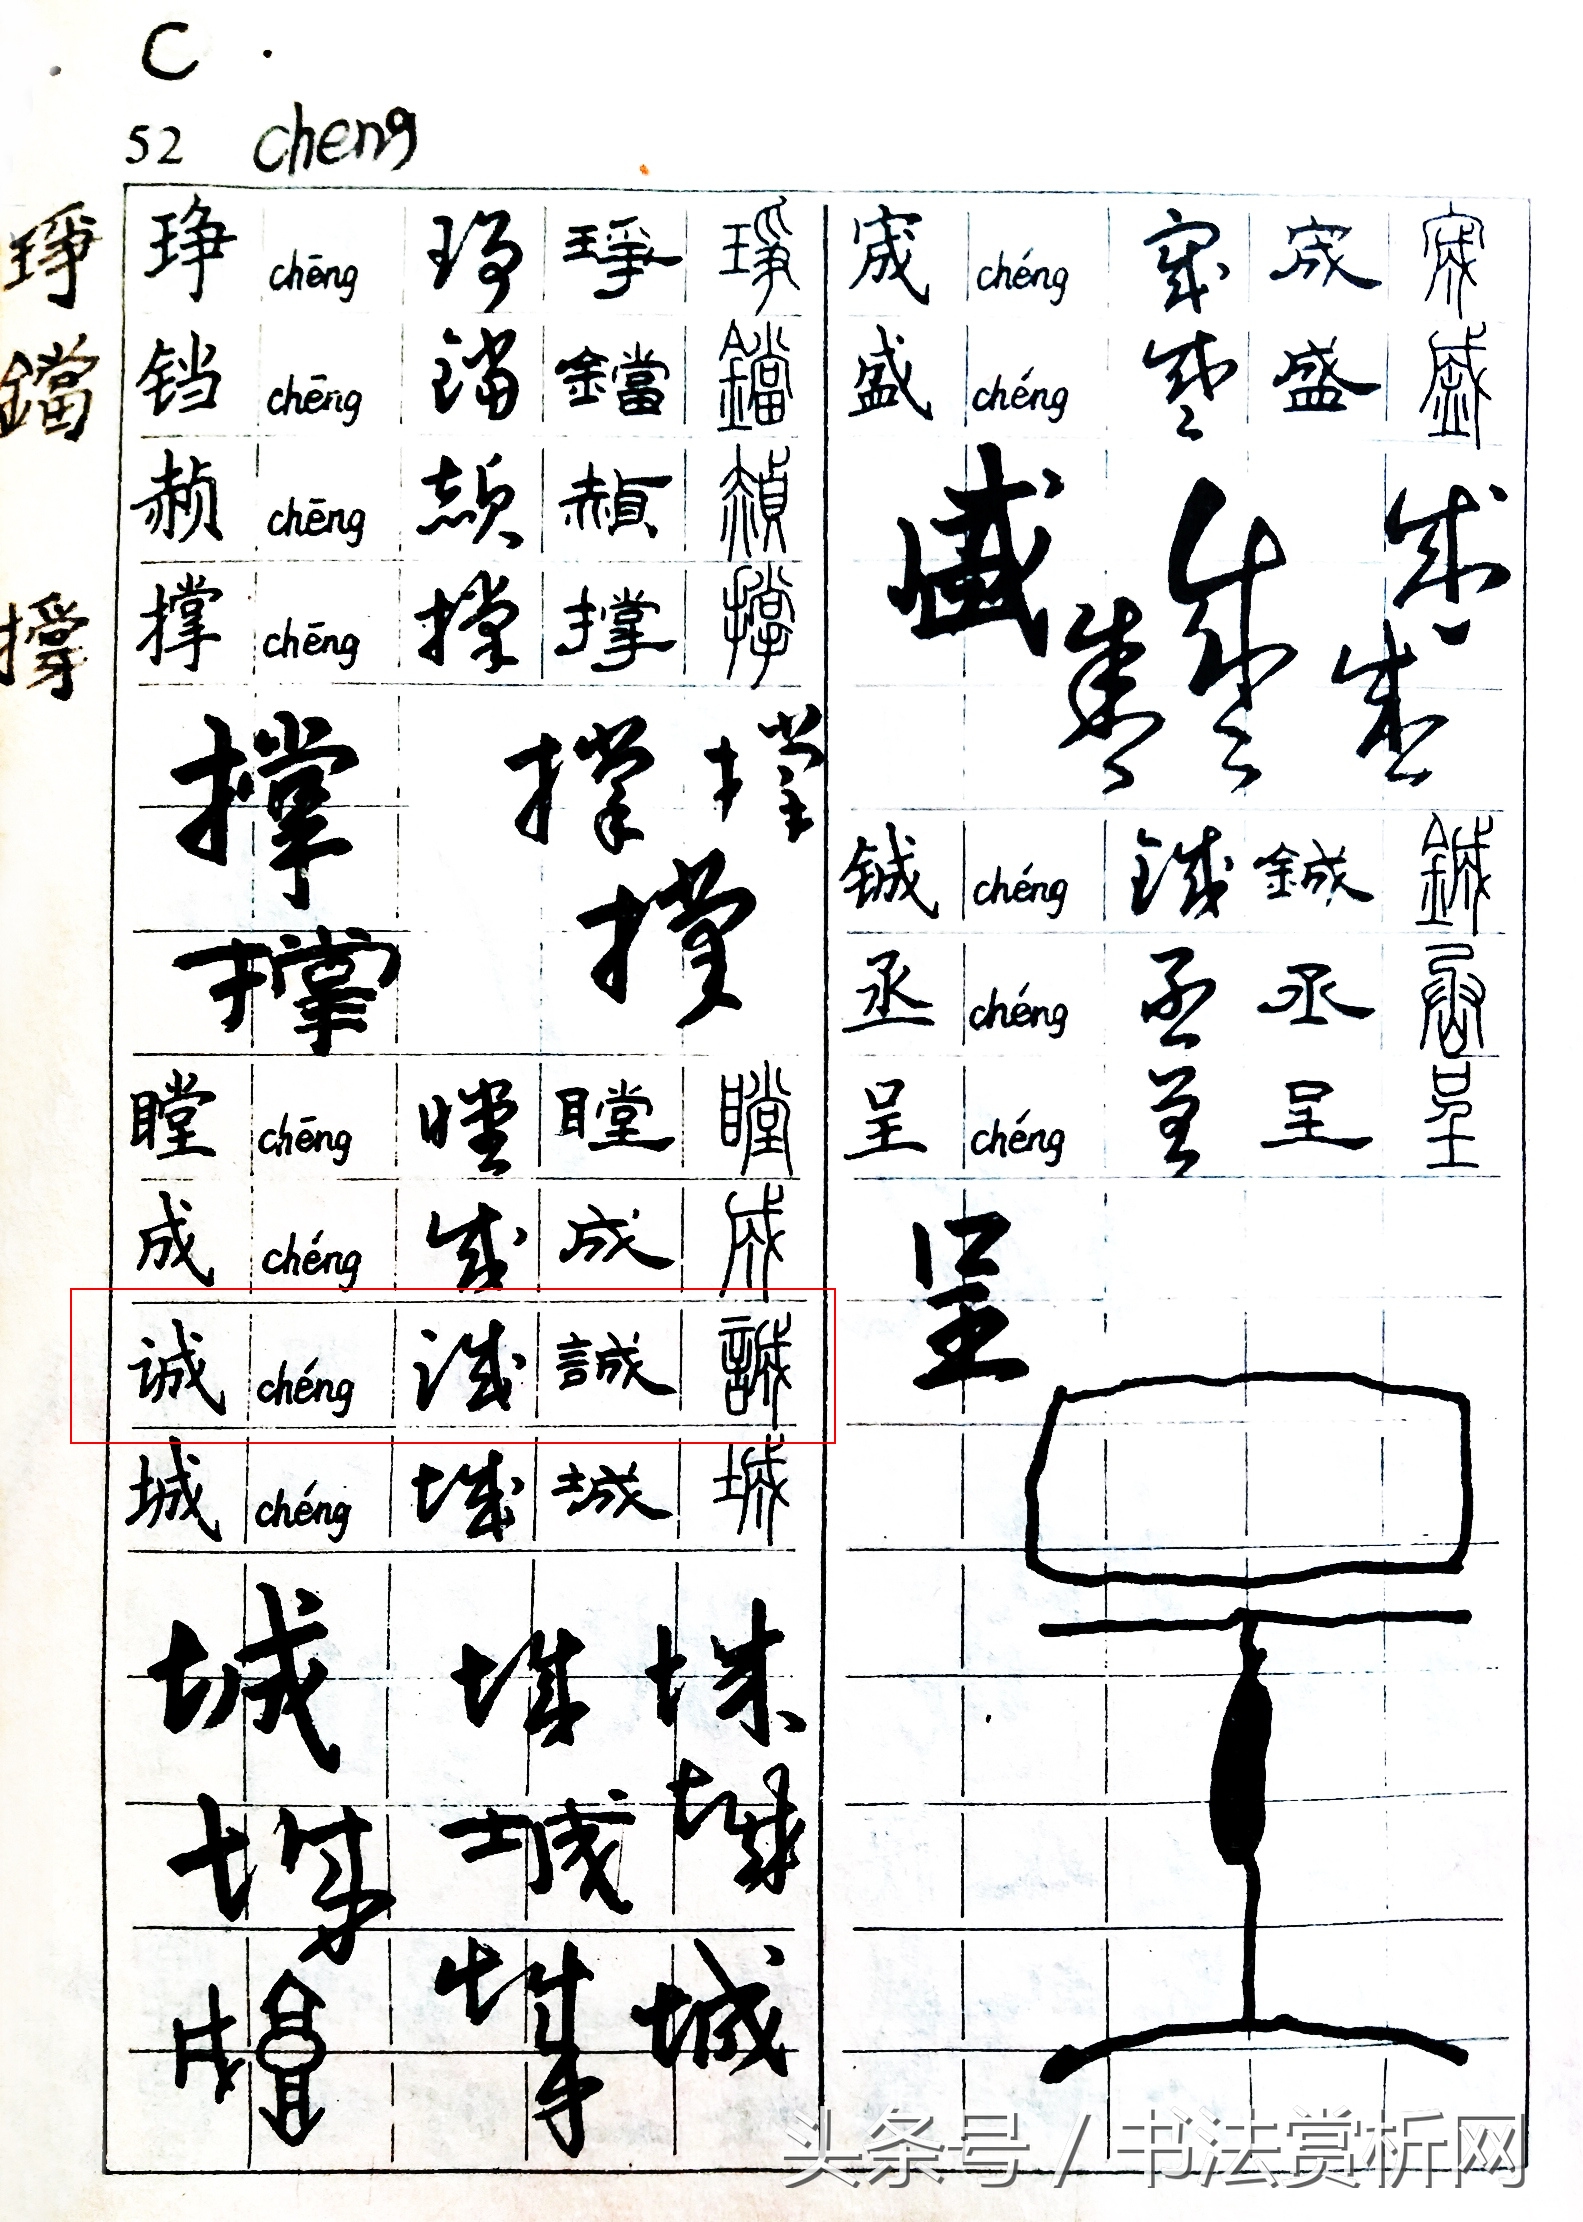 C
52 cheng
琤 琤 chēng 琤 琤 琤
鐺 铛 chēng 铛 鐺 鐺
赪 chēng 赬 赬 赬
撑 撑 chēng 撑 撑 撑
撑 撑 撑
撑 撑
瞠 chēng 瞠 瞠 瞠
成 chéng 成 成 成
诚 chéng 诚 誠 誠
城 chéng 城 城 城
城 城 城
城 城 城
城 城 城
宬 chéng 宬 宬 宬
盛 chéng 盛 盛 盛
盛 盛 盛 盛 盛
铖 chéng 铖 鋮 鋮
丞 chéng 丞 丞 丞
呈 chéng 呈 呈 呈
呈 呈
头条号 / 书法赏析网